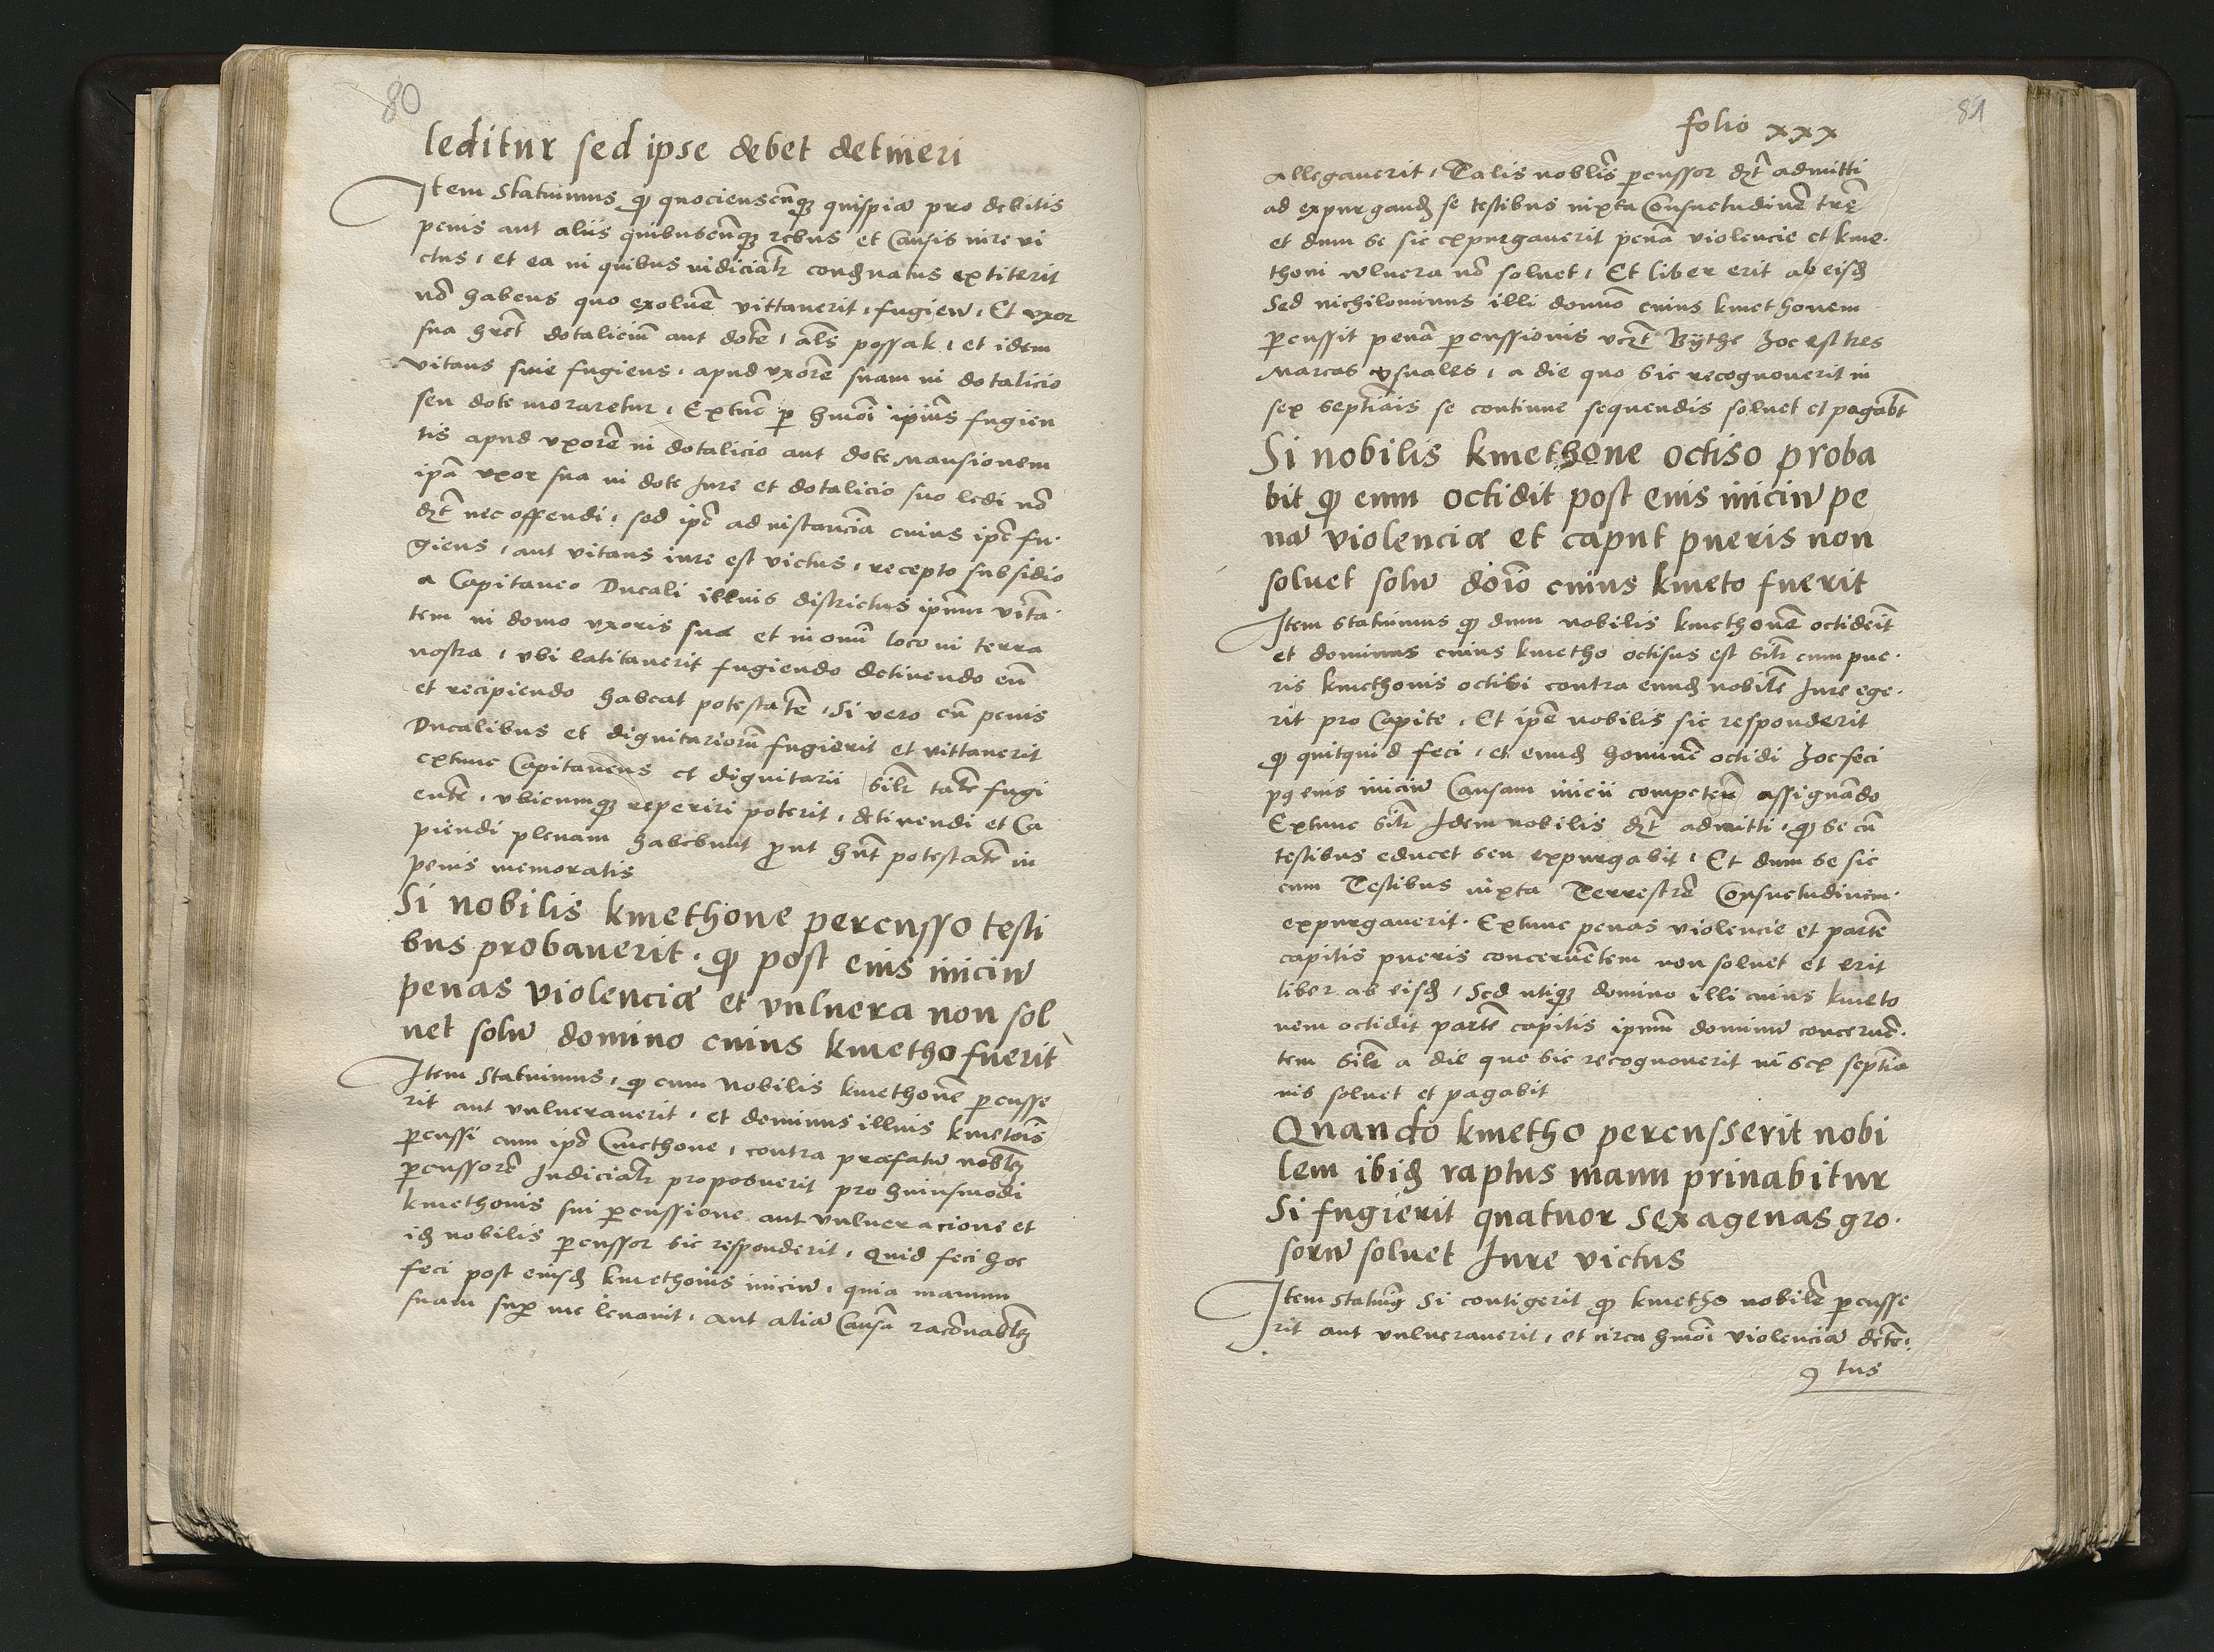 80
leditur sed ipse debet detineri
Item Statuimus ꝙ quociensciq̃ꝫ quispiã pro debitis
penis aut aliis quibuscũqꝫ rebus et Causis iure vi
ctus, et ea in quibus iudicialr̃ condẽnatus extiterit
nõ habens quo exoluẽ vittauerit, fugiẽ, Et vxor
sua hr̃et dotaliciũ aut dotẽ, als̃ possak, et idem
vitans siue fugiens, apud vxorẽ suam in dotalicio
seu dote moraretur, Extũc ꝑ hmõi ipiũs fugien
tis apud vxorẽ in dotalicio aut dote mansionem
ipã vxor sua in dote Iure et dotalicio suo ledi nõ
dꝫt̃ nec offendi, sed ipẽ ad instanciã cuius ipẽ fu.
giens, aut vitans iure est victus, recepto subsidio
a Capitaneo Ducali illius districtus ipm̃ vitã.
tem in domo vxoris suæ et in oñi loco in terra
nostra, vbi latitauerit fugiendo detinendo eũ
et recipiendo habeat potestatẽ, Si vero cũ penis
Ducalibus et dignitariorũ fugierit et vittauerit
extunc Capitaneus et dignitarii silr̃ talẽ fugi
entẽ, vbicumqꝫ reperiri poterit, detinendi et Ca
piendi plenam habebunt ꝓut hñt potestatẽ in
penis memoratis
Si nobilis kmethone percusso testi
bus probauerit. ꝙ post eius iniciũ
penas violenciæ et vulnera non sol
uet solũ domino cuius kmetho fuerit
Item Statuimus, ꝙ cum Nobilis kmethonẽ ꝑcusse
rit aut vulnerauerit, et dominus illius kmetoĩs
ꝑcussi cum ipõ Cmethone, contra præfatũ nobilẽ
ꝑcussorẽ Iudicialr̃ proposuerit pro huiusmodi
kmethonis sui ꝑcussione aut vulneracione et
idẽ nobilis ꝑcussor sic responderit, Quid feci hoc
feci post eiusdẽ kmethonis iniciũ, quia manum
suam suꝑ me leuauit, aut aliã Causã racõnabilẽ
folio xxx
81
allegauerit, Talis nobĩlis ꝑcussor dꝫt̃ admitti
ad expurgandũ se testibus iuxta Consuetudinẽ trẽ
et dum se sic expurgauerit penã violencie et kme.
thoni wlnera nõ soluet, Et liber erit ab eisdẽ
Sed nichilominus illi domiõ cuius kmethonem
ꝑcussit penã ꝑcussionis vcꝫt̃ Bythe hoc est tres
Marcas vsuales, a die quo sic recognouerit in
sex septiãis se continue sequendis soluet et pagabt̃
Si nobilis kmethone octiso proba
bit ꝙ eum octidit post eius iniciũ pe
nã violenciæ et caput pueris non
soluet solũ dõio cuius kmeto fuerit
Item Statuimus ꝙ dum nobilis kmethonẽ octiderit
et dominus cuius kmetho octisus est silr̃ cum pue.
ris kmethonis octisi contra eundẽ nobilẽ Iure ege.
rit pro Capite, Et ipẽ nobilis sic responderit
ꝙ quitquid feci, et eundẽ hominẽ octidi hoc feci
pꝯ eius iniciũ Causam inicii competeñ assignãdo
Extunc silr̃ Idem nobilis dꝫt̃ admitti, ꝙ se cũ
testibus educet seu expurgabit, Et dum se sic
cum Testibus iuxta Terrestrẽ Consuetudinem.
expurgauerit. Extunc penas violencie et partẽ
capitis pueris concernẽtem non soluet et erit
liber ab eisdẽ, Sed utiqꝫ domino illi cuius kmeto
nem octidit partẽ capitis ipm̃ dominũ concernẽ.
tem silr̃ a die quo sic recognouerit in sex septiã
nis soluet et pagabit
Quando kmetho percusserit nobi
lem ibidẽ raptus manu priuabitur
Si fugierit quatuor sexagenas gro.
sorũ soluet Iure victus
Item statuimꝰ Si contigerit ꝙ kmetho nobilẽ ꝑcusse
rit aut vulnerauerit, et circa hmõi violenciã detẽ.
tus